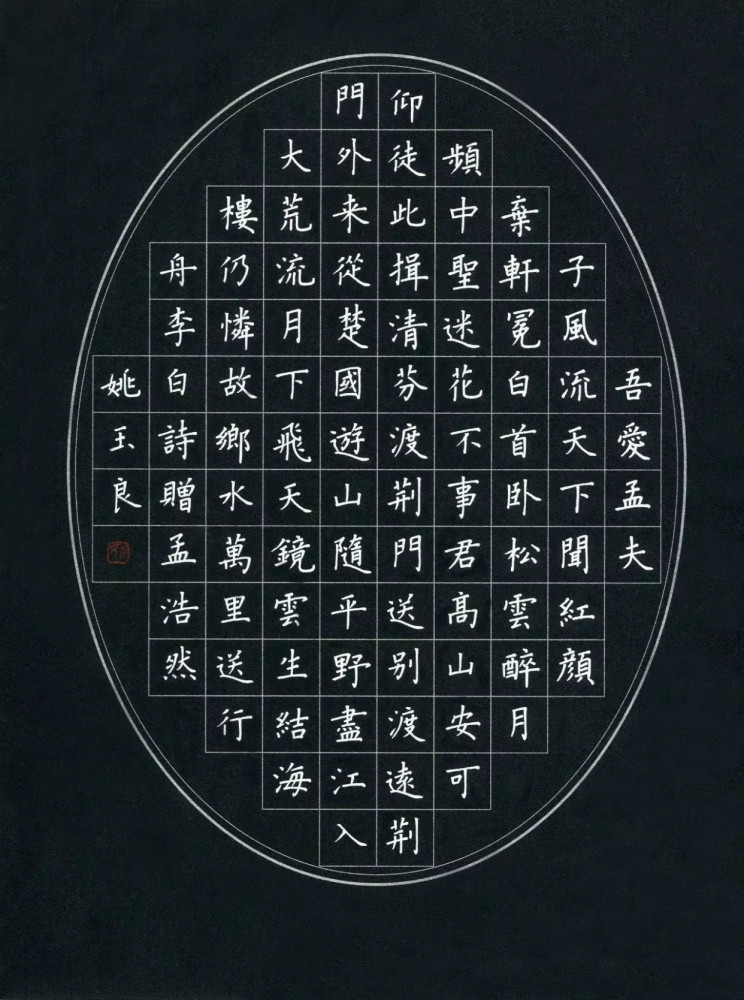 吾愛孟夫
子風流天下聞紅顔
棄軒冕白首卧松雲醉月
頻中聖迷花不事君高山安可
仰徒此揖清芬渡荆門送别渡遠荆
門外来從楚國遊山隨平野盡江入
大荒流月下飛天鏡雲生結海
樓仍憐故鄉水萬里送行
舟李白詩贈孟浩然
姚玉良